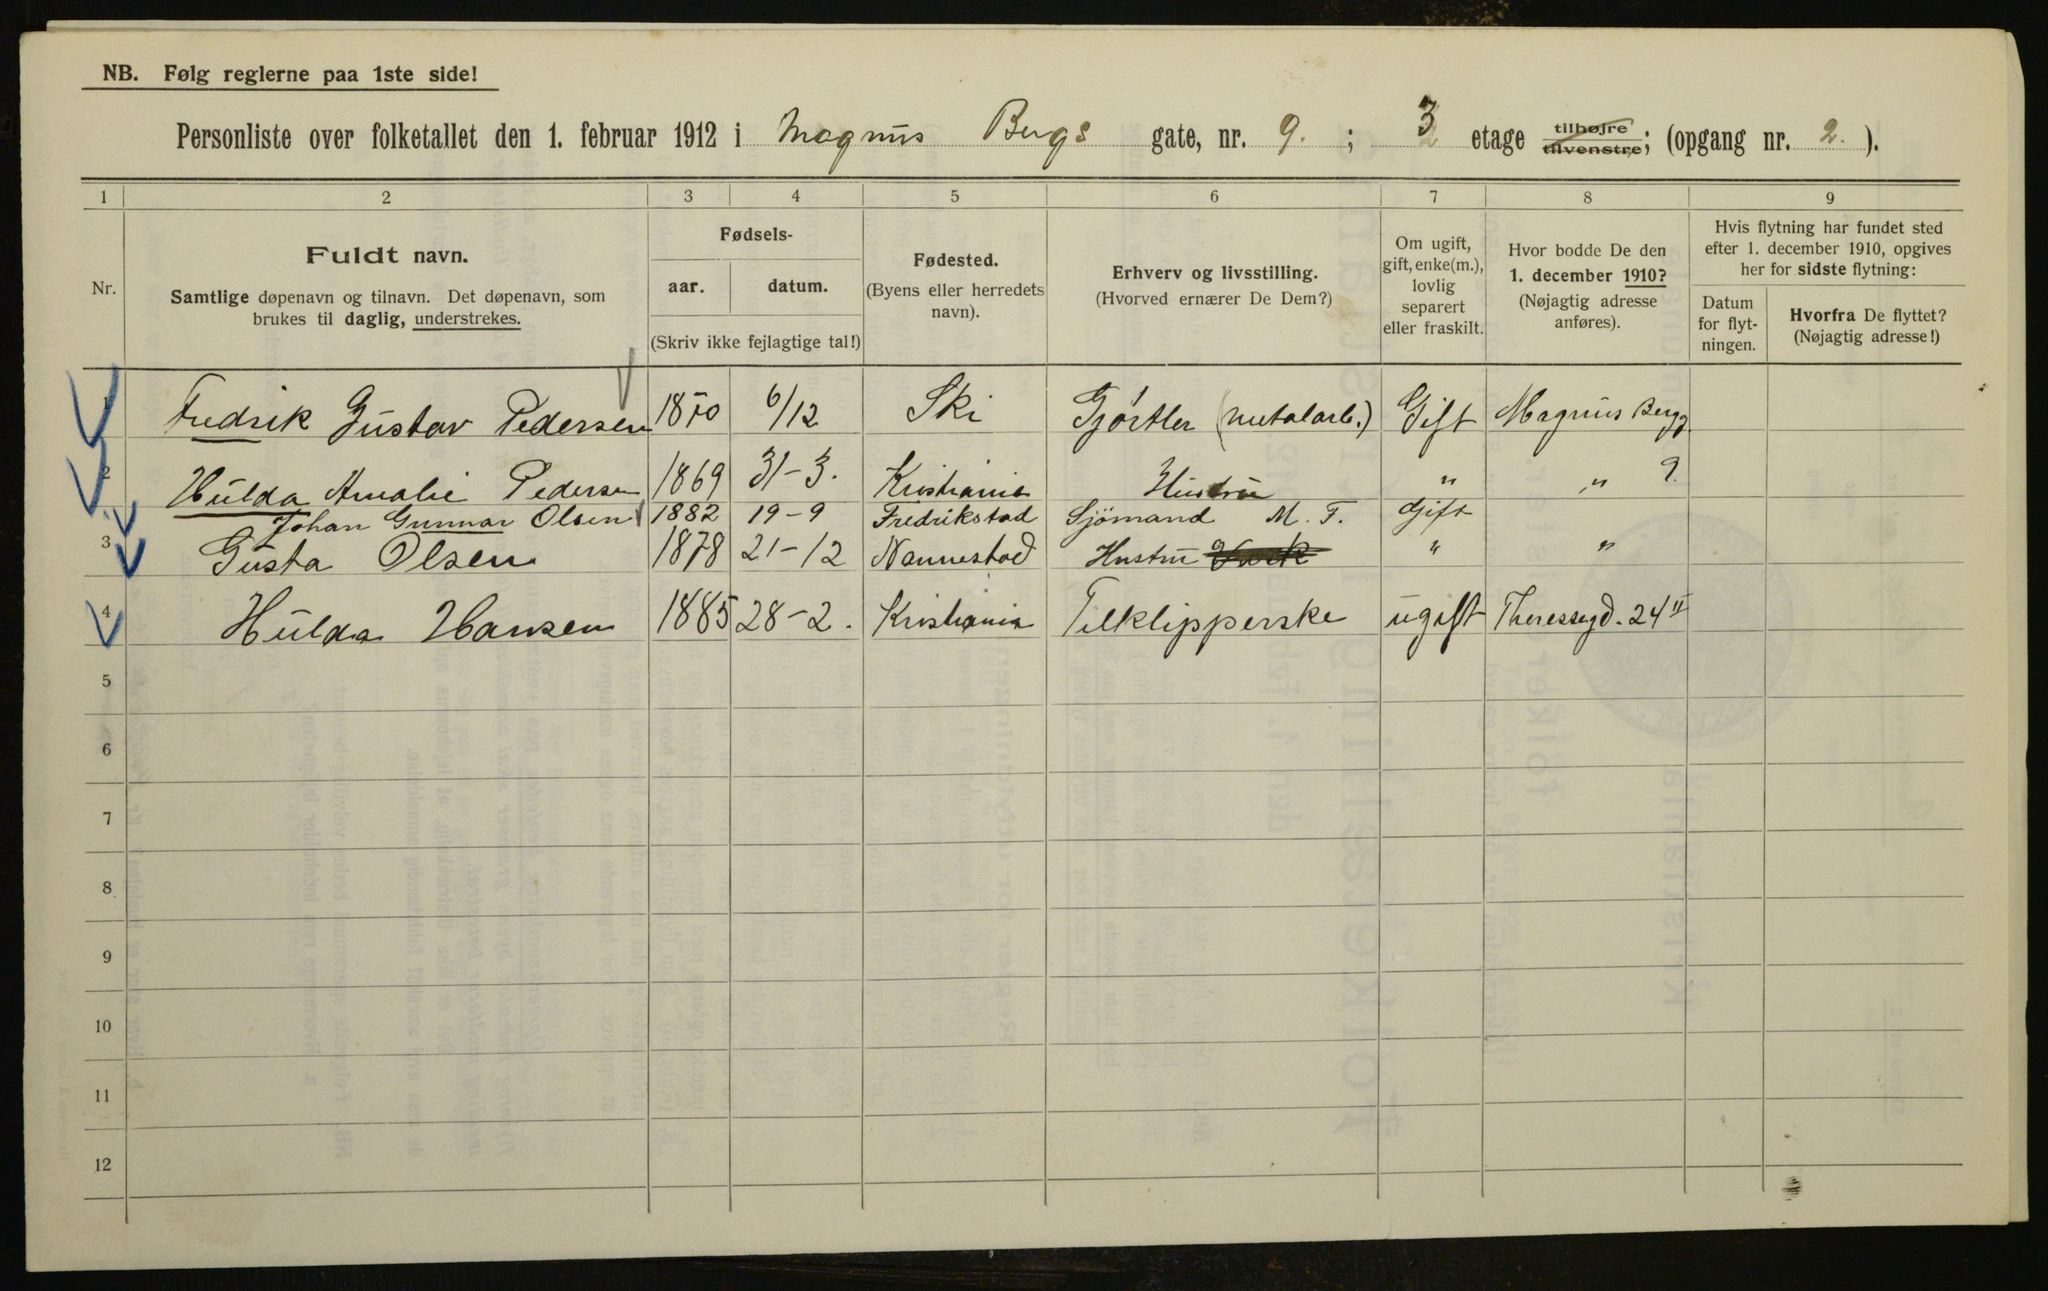 NB. Følg reglerne paa 1ste side!
Personliste over folketallet den 1. februar 1912 i Magnus Bergs gate, nr. 9. ; 3 etage tilhøjre tilvenstre; (opgang nr. 2. ).
1 2 3 4 5 6 7 8 9
Nr.
Fuldt navn.
Samtlige døpenavn og tilnavn. Det døpenavn, som
brukes til daglig, understrekes.
Fødsels-
aar. datum.
(Skriv ikke fejlagtige tal!)
Fødested.
(Byens eller herredets
navn).
Erhverv og livsstilling.
(Hvorved ernærer De Dem?)
Om ugift,
gift, enke(m.),
lovlig
separert
eller fraskilt.
Hvor bodde De den
1. december 1910?
(Nøjagtig adresse
anføres).
Hvis flytning har fundet sted
efter 1. december 1910, opgives
her for sidste flytning:
Datum
for flyt-
ningen.
Hvorfra De flyttet?
(Nøjagtig adresse!)
1 Fredrik Gustav Pedersen 1870 6/12 Ski Gjørtler (metalarb.) Gift Magnus Bergg.
2 Hulda Amalie Pedersen 1869 31-3. Kristiania Hustru " " 9.
Johan Gunnar Olsen 1882 19-9 Fredrikstad Sjömand M. F. Gift
3 Gusta Olsen 1878 21-12 Nannestad Hustru " "
4 Hulda Hansen 1885 28-2. Kristiania Tilklipperske ugift Theressegd. 24 II
5
6
7
8
9
10
11
12